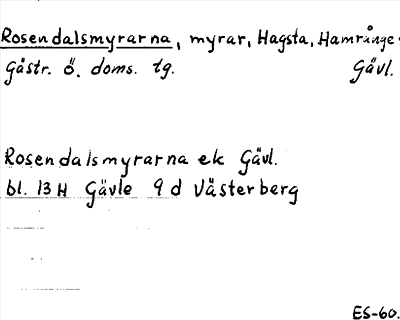 Rosendalsmyrarna, myrar, Hagsta, Hamrånge
Gästr. ö. doms. tg. Gävl.
Rosendalsmyrarna ek Gävl.
bl. 13 H Gävle 9 d Västerberg
ES-60.